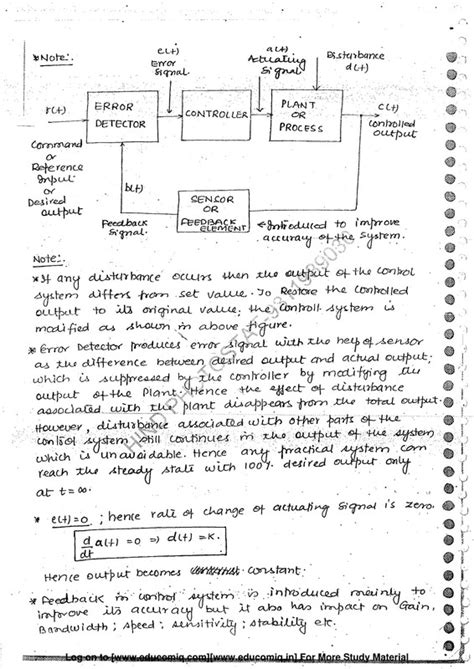 * Note:
e(t)
Error
Signal
a(t)
Actuating
Signal
Disturbance
d(t)
r(t)
ERROR
DETECTOR
CONTROLLER
PLANT
OR
PROCESS
c(t)
Controlled
output
Command
or
Reference
Input
or
Desired
output
b(t)
Feedback
Signal
SENSOR
OR
FEEDBACK
ELEMENT
Introduced to improve
accuracy of the System.
Note:
* If any disturbance occurs then the output of the control
system differs from set value. To Restore the Controlled
output to its original value, the Controll system is
modified as shown in above figure.
* Error Detector produces error signal with the help of sensor
as the difference between desired output and actual output;
which is suppressed by the controller by modifying the
output of the Plant. Hence the effect of disturbance
associated with the plant disappears from the total output.
However, disturbance associated with other parts of the
control system still continues in the output of the system
which is unavoidable. Hence any practical system can
reach the steady state with 100% desired output only
at t=∞.
* e(t)=0 ; hence rate of change of actuating signal is zero.
d/dt a(t) = 0 => d(t)=K.
Hence output becomes constant.
* Feedback in control system is introduced mainly to
improve its accuracy but it also has impact on Gain,
Bandwidth, speed, sensitivity, stability etc.
Log on to [www.educomiq.com][www.educomiq.in] For More Study Material